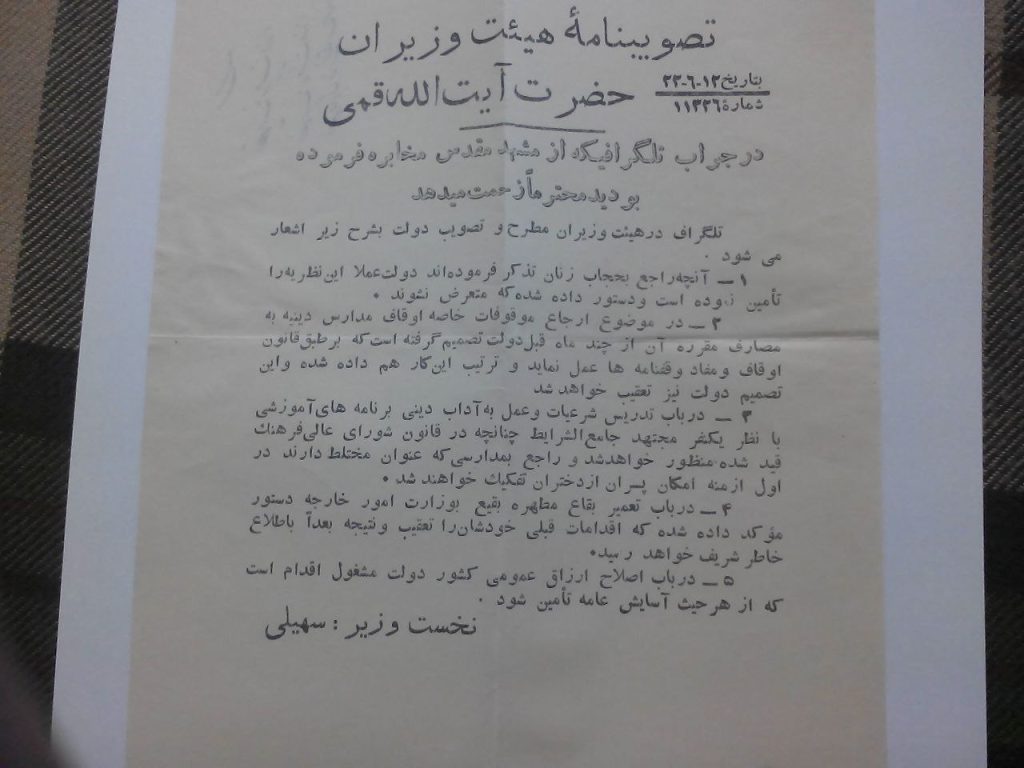 تصویبنامهٔ هیئت وزیران
بتاریخ ۱۲-۶-۲۲
شمارهٔ ۱۱۳۲۶
حضرت آیت الله قمی
در جواب تلگرافیکه از مشهد مقدس مخابره فرموده
بودید محترماً زحمت میدهد
تلگراف در هیئت وزیران مطرح و تصویب دولت بشرح زیر اشعار
می شود .
۱ ــ آنچه راجع بحجاب زنان تذکر فرموده‌اند دولت عملا این نظریه را
تأمین نموده است و دستور داده شده که متعرض نشوند .
۲ ــ در موضوع ارجاع موقوفات خاصه اوقاف مدارس دینیه به
مصارف مقرره آن از چند ماه قبل دولت تصمیم گرفته است که برطبق قانون
اوقاف و مفاد وقفنامه ها عمل نماید و ترتیب این کار هم داده شده و این
تصمیم دولت نیز تعقیب خواهد شد
۳ ــ درباب تدریس شرعیات وعمل به آداب دینی برنامه های آموزشی
با نظر یکنفر مجتهد جامع الشرایط چنانچه در قانون شورای عالی فرهنگ
قید شده منظور خواهد شد و راجع بمدارسی که عنوان مختلط دارند در
اول ازمنه امکان پسران از دختران تفکیک خواهند شد .
۴ ــ درباب تعمیر بقاع مطهره بقیع بوزارت امور خارجه دستور
مؤکد داده شده که اقدامات قبلی خودشان را تعقیب و نتیجه بعداً باطلاع
خاطر شریف خواهد رسید.
۵ ــ درباب اصلاح ارزاق عمومی کشور دولت مشغول اقدام است
که از هر حیث آسایش عامه تأمین شود .
نخست وزیر : سهیلی